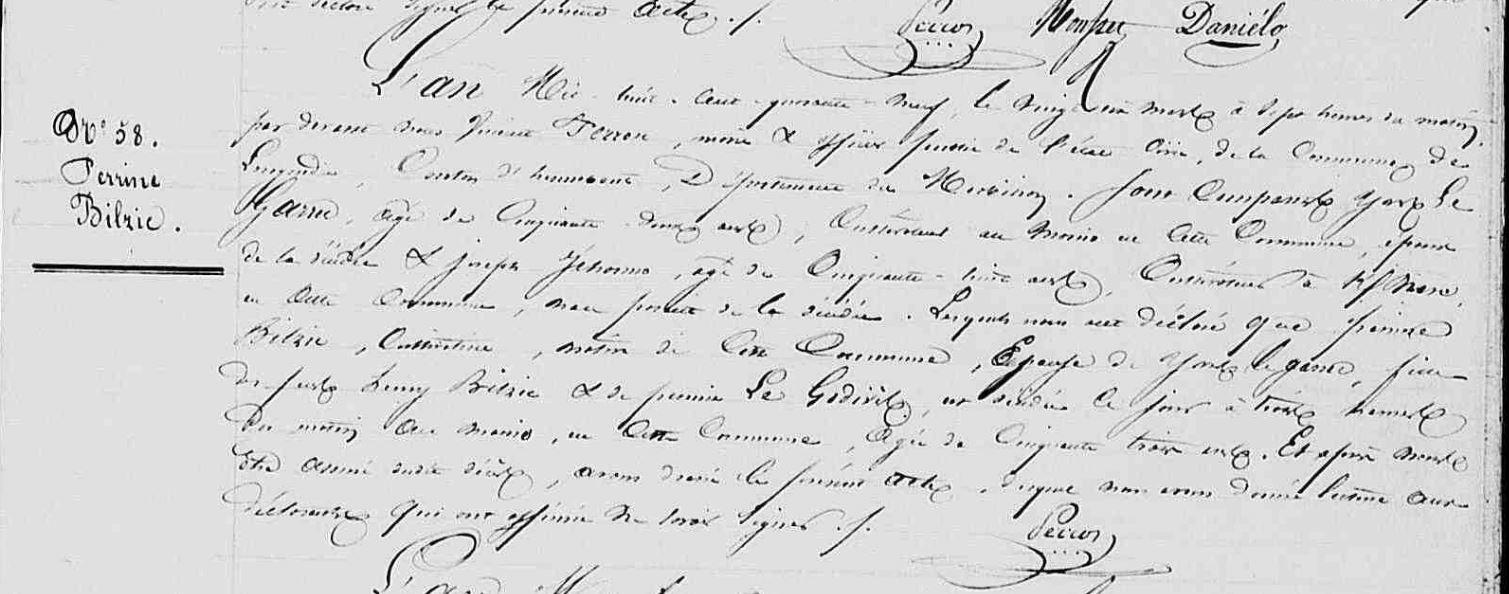 signer le présent acte ./.
Perron Daniélo
L'an Mil huit cent quarante neuf, le vingt un mars à sept heures du matin,
N° 58. par devant nous Perron, maire & officier public de l'état civil, de la Commune de
Perrine Canton d'hennebont, Département du Morbihan. Sont Comparus Yves Le
Bilzic. Game, agé de Cinquante deux ans, Cultivateur au en Cette Commune, époux
de la décédée & Joseph Jéhanno, agé de Cinquante huit ans, Cultivateur à
en Cette Commune, non parent de la décédée. Lesquels nous ont déclaré que perrine
Bilzic, Cultivatrice, native de Cette Commune, Epouse de Yves le game, fille
de feux Bilzic & de perrine Le est décédée Ce jour à trois heures
du matin au en Cette Commune, agée de Cinquante trois ans. Et après nous
être assuré dudit décès, avons dressé le présent acte, duquel nous avons donné lecture aux
déclarants qui ont affirmé ne savoir signer ./.
Perron
L'an